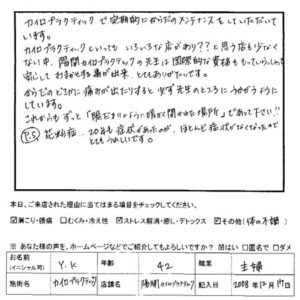 カイロプラクティックで定期的にからだのメンテナンスをしていただいて
います。
カイロプラクティックといってもいろいろな店があり??と思う店も少なく
ない中、陽開カイロプラクティックの先生は国際的な資格ももっていらっしゃって
安心しておまかせする事が出来、とてもありがたいです。
からだのどこかに痛みが出たりすると必ず先生のところにうかがうように
しています。
これからもずっと「陽だまりのように暖かく開かれた場所」であって下さい!!
P.S 花粉症…20年も症状があったのが、ほとんど症状がなくなったので
とてもうれしいです。
本日、ご来店された理由に当てはまる項目をチェックしてください。
☑肩こり・腰痛 □むくみ・冷え性 ☑ストレス解消・癒し・デトックス ☑その他(体の不調)
※ あなた様の声を、ホームページなどでご紹介してもよろしいですか? ☑はい □匿名で □ダメ
お名前 (イニシャル可) Y.K 年齢 42 職業 主婦
施術名 カイロプラクティック 店舗名 陽開カイロプラクティック 記入日 2008年12月17日